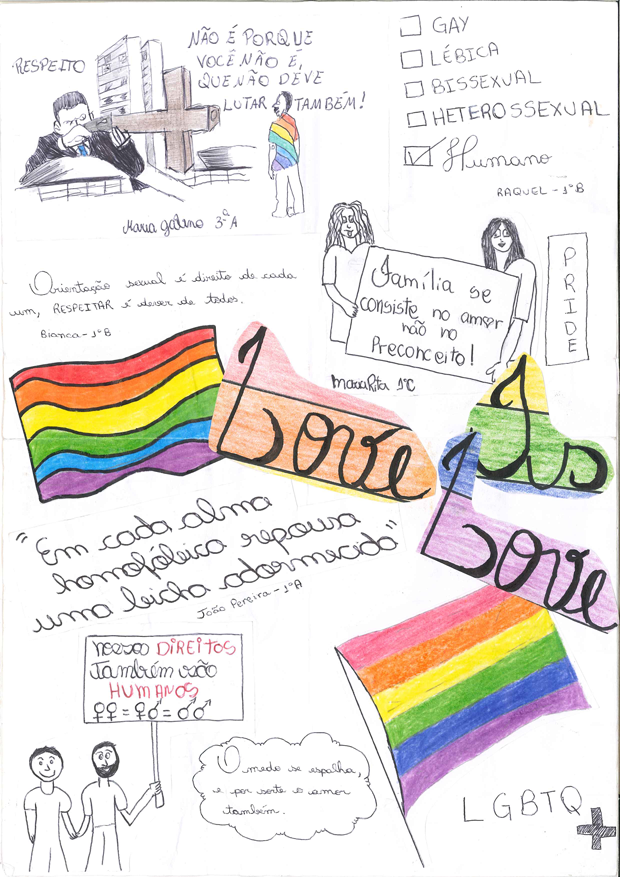 RESPEITO
NÃO É PORQUE
VOCÊ NÃO É,
QUE NÃO DEVE
LUTAR TAMBÉM!
Maria galeno 3ªA
GAY
LÉBICA
BISSEXUAL
HETEROSSEXUAL
Humano
RAQUEL - 1ºB
Família se
consiste no amor
não no
Preconceito!
Maria Rita 1ºC
PRIDE
Orientação sexual é direito de cada
um, RESPEITAR é dever de todos.
Bianca - 1ºB
Love
Is
Love
"Em cada alma
homofóbica repousa
uma bicha adormecida"
João Pereira - 1ºA
nossos DIREITOS
também são
HUMANOS
♀♀=♀♂=♂♂
O medo se espalha,
e por sorte o amor
também.
LGBTQ+